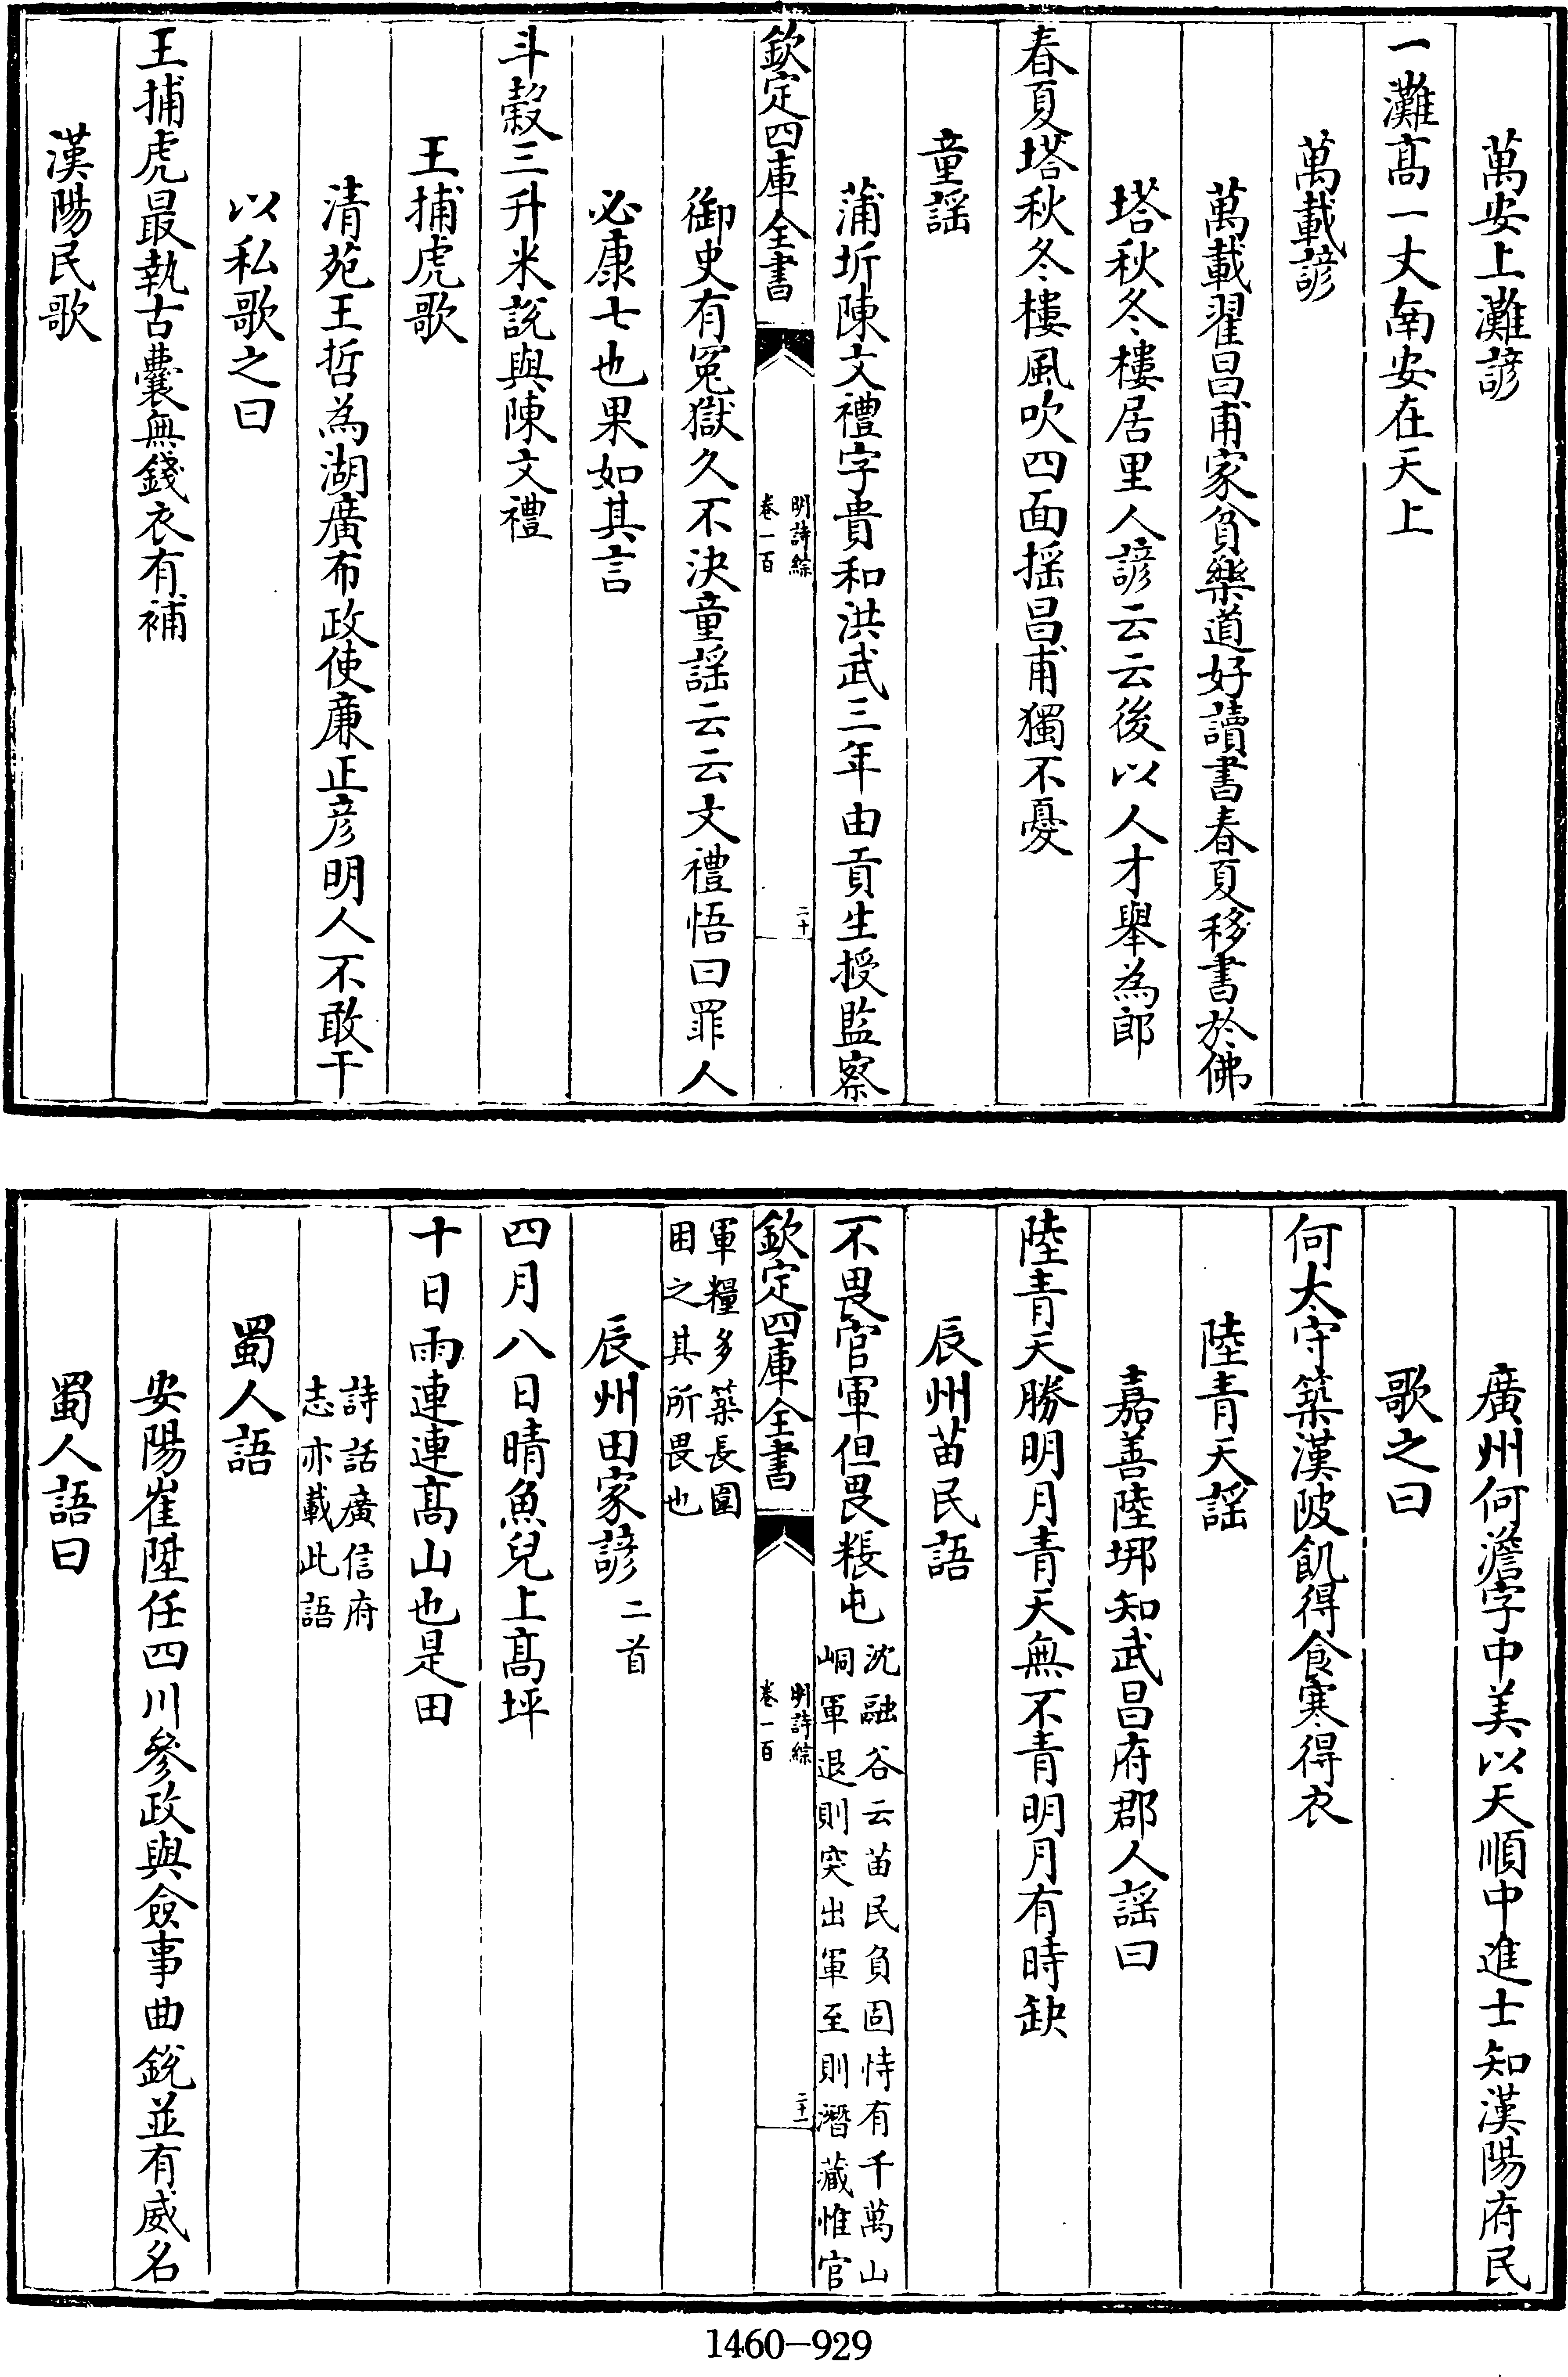 萬安上灘諺
一灘高一丈南安在天上
萬載諺
萬載翟昌甫家貧樂道好讀書春夏移書於佛
塔秋冬樓居里人諺云云後以人才舉為郎
春夏塔秋冬樓風吹四面揺昌甫獨不憂
童謡
蒲圻陳文禮字貴和洪武三年由貢生授監察
欽定四庫全書
明詩綜
卷一百
二十
御史有冤獄久不決童謡云云文禮悟曰罪人
必康七也果如其言
斗穀三升米說與陳文禮
王捕虎歌
清苑王哲為湖廣布政使廉正彦明人不敢干
以私歌之曰
王捕虎最執古囊無錢衣有補
漢陽民歌
廣州何澹字中美以天順中進士知漢陽府民
歌之曰
何太守築漢陂飢得食寒得衣
陸青天謡
嘉善陸垹知武昌府郡人謡曰
陸青天勝明月青天無不青明月有時缺
辰州苗民語
不畏官軍但畏粻屯沈融谷云苗民負固恃有千萬山
峒軍退則突出軍至則潛藏惟官
欽定四庫全書
明詩綜
卷一百
二十一
軍糧多築長圍
困之其所畏也
辰州田家諺二首
四月八日晴魚兒上髙坪
十日雨連連髙山也是田
詩話廣信府
志亦載此語
蜀人語
安陽崔陞任四川參政與僉事曲銳並有威名
蜀人語曰
1460-929